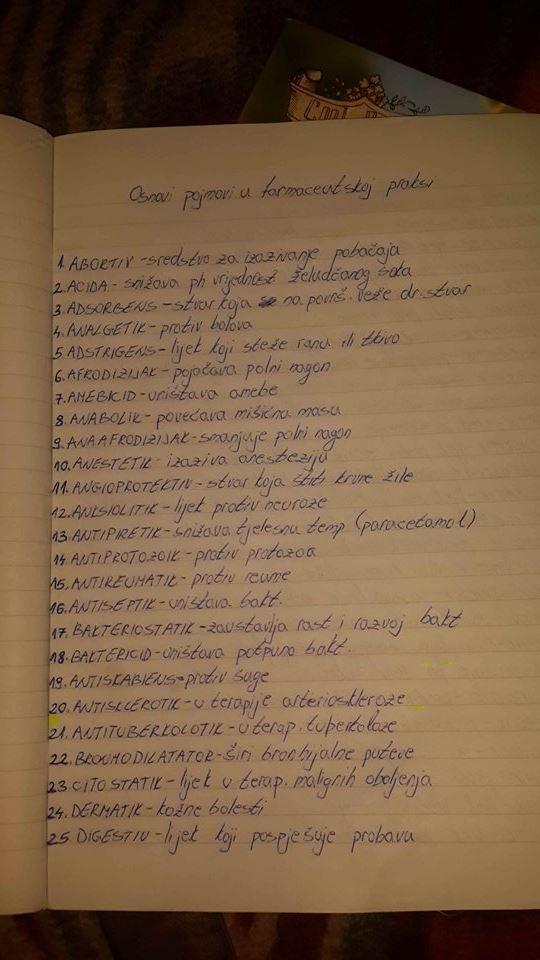 Osnovi pojmovi u farmaceutskoj praksi
1. ABORTIV - sredstvo za izazivanje pobačaja
2. ACIDA - snižava ph vrijednost želudčanog soka
3. ADSORBENS - stvar koja na površ. veže dr. stvar
4. ANALGETIK - protiv bolova
5. ADSTRIGENS - lijek koji steže ranu ili tkivo
6. AFRODIZIJAK - pojačava polni nagon
7. AMEBICID - uništava amebe
8. ANABOLIK - povećava mišićnu masu
9. ANAAFRODIZIJAK - smanjuje polni nagon
10. ANESTETIK - izaziva anesteziju
11. ANGIOPROTEKTIV - stvar koja štiti krvne žile
12. ANKSIOLITIK - lijek protiv neuroze
13. ANTIPIRETIK - snižava tjelesnu temp (paracetamol)
14. ANTIPROTOZOIK - protiv protozoa
15. ANTIREUMATIK - protiv reume
16. ANTISEPTIK - uništava bakt.
17. BAKTERIOSTATIK - zaustavlja rast i razvoj bakt
18. BAKTERICID - uništava potpuno bakt.
19. ANTISKABIENS - protiv šuge
20. ANTISKLEROTIK - u terapije arterioskleroze
21. ANTITUBERKOLOTIK - u terap. tuberkoloze
22. BRONHODILATATOR - širi bronhijalne puteve
23. CITOSTATIK - lijek u terap. malignih oboljenja
24. DERMATIK - kožne bolesti
25. DIGESTIV - lijek koji pospješuje probavu